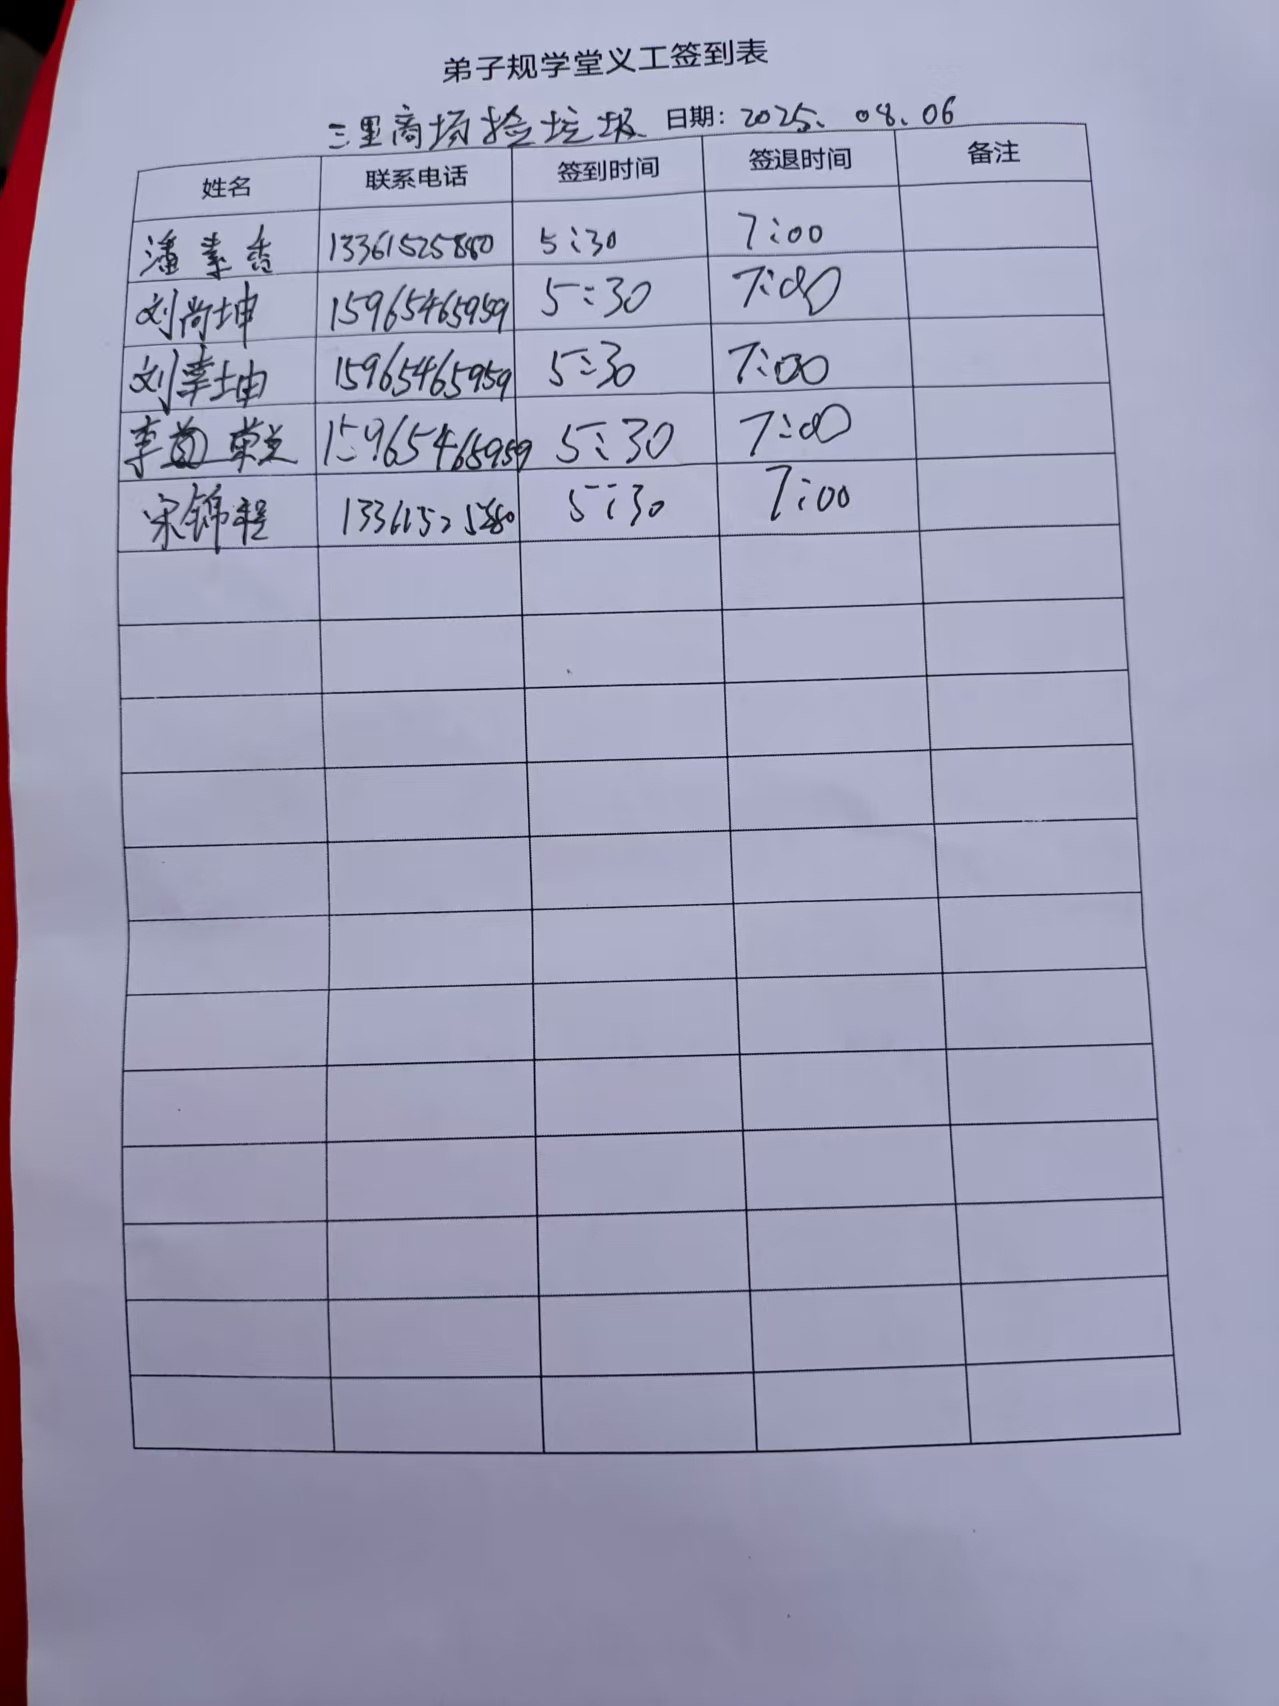 弟子规学堂义工签到表
三里商场捡垃圾 日期：2025.08.06
姓名 联系电话 签到时间 签退时间 备注
潘素香 13361525880 5:30 7:00
刘尚坤 15965465959 5:30 7:00
刘幸坤 15965465959 5:30 7:00
李 荣兰 15965465959 5:30 7:00
宋锦程 13361525880 5:30 7:00